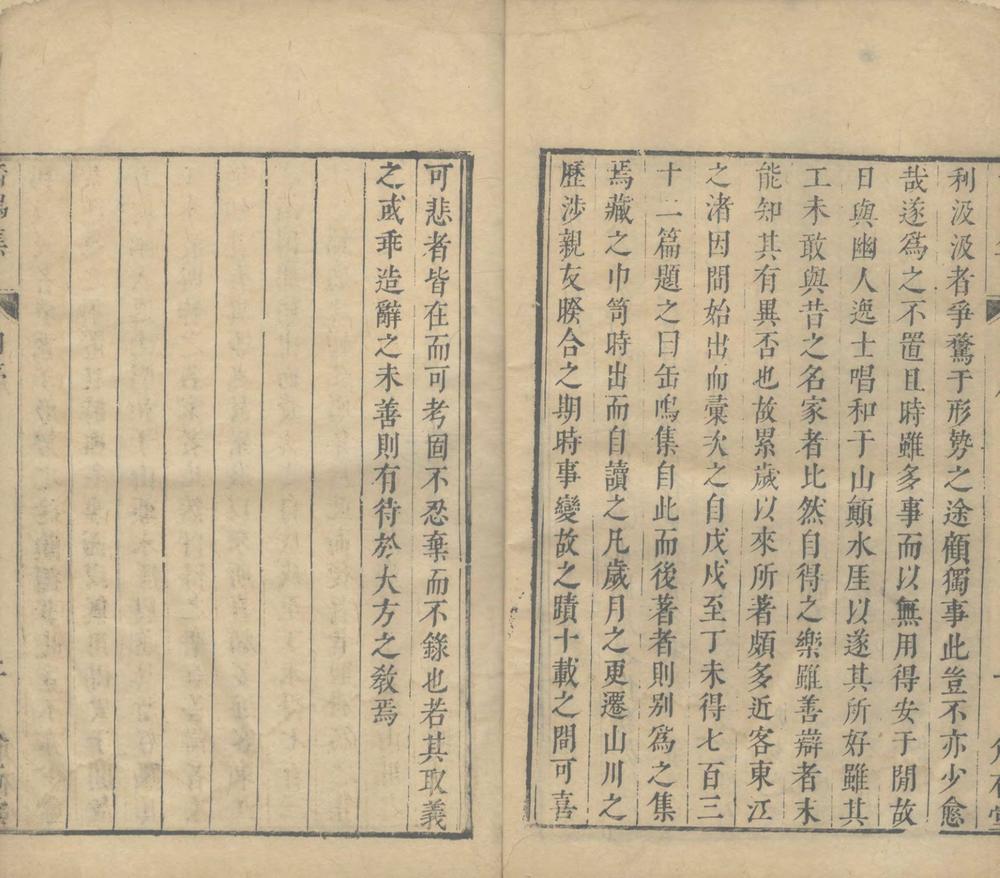 利汲汲者爭騖于形勢之途顧獨事此豈不亦少愈
哉遂爲之不置且時雖多事而以無用得安于閒故
日與幽人逸士唱和于山顛水厓以遂其所好雖其
工未敢與昔之名家者比然自得之樂雖善辯者未
能知其有異否也故累歲以來所著頗多近客東江
之渚因間始出而彙次之自戊戌至丁未得七百三
十二篇題之曰缶鳴集自此而後著者則别爲之集
焉藏之巾笥時出而自讀之凡歲月之更遷山川之
歷涉親友睽合之期時事變故之蹟十載之間可喜
可悲者皆在而可考固不忍棄而不錄也若其取義
之或乖造辭之未善則有待於大方之教焉